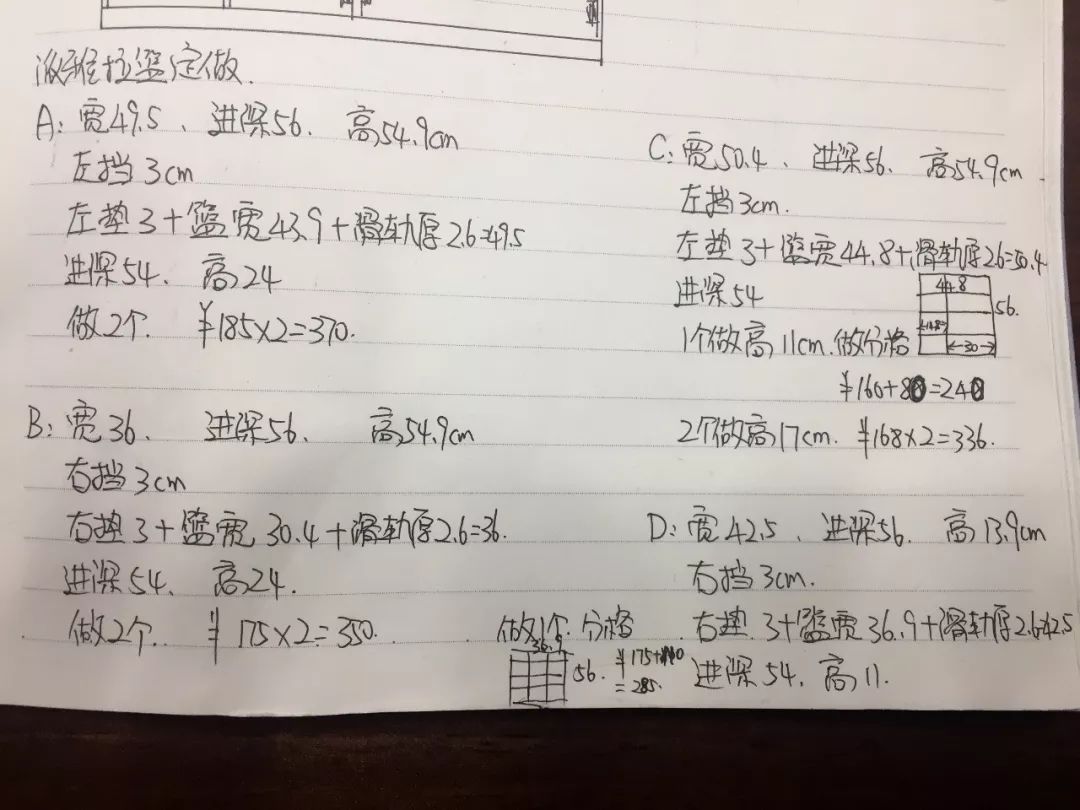 拉篮定做.
A: 宽49.5、进深56. 高54.9cm
左挡3cm
左垫3+篮宽43.9+滑轨厚2.6=49.5
进深54. 高24
做2个. ¥185×2=370.
B: 宽36. 进深56. 高54.9cm
右挡3cm
右垫3+篮宽30.4+滑轨厚2.6=36.
进深54. 高24.
做2个. ¥175×2=350.
C: 宽50.4、进深56. 高54.9cm
左挡3cm.
左垫3+篮宽44.8+滑轨厚2.6=50.4
进深54
44.8
56.
14.8
30
1个做高11cm.做分格
¥160+80=240
2个做高17cm. ¥168×2=336.
D: 宽42.5、进深56. 高13.9cm
右挡3cm.
右垫3+篮宽36.9+滑轨厚2.6=42.5
进深54. 高11.
做1个. 分格
36.9
56.
¥175+110
=285.